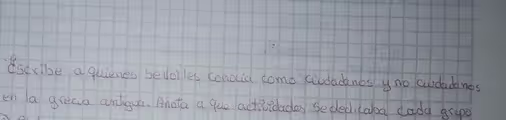 describe a quienes se les conocía como ciudadanos y no ciudadanos
en la grecia antigua. Anota a que actividades se dedicaba cada grupo